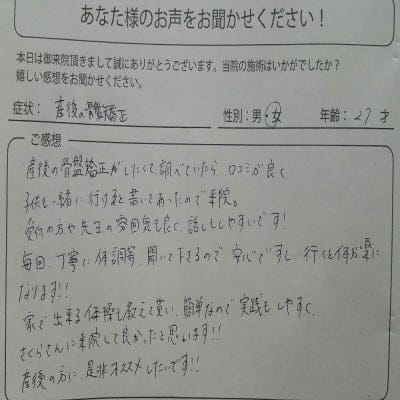 あなた様のお声をお聞かせください！
本日は御来院頂きまして誠にありがとうございます。当院の施術はいかがでしたか？
嬉しい感想をお聞かせください。
症状： 産後の骨盤矯正 性別：男・女 年齢：27才
ご感想
産後の骨盤矯正がしたくて、調べていたら、口コミが良く
子供も一緒に行けると書いてあったので来院。
受付の方や先生の雰囲気も良く、話ししやすいです！
毎回、丁寧に体調等、聞いて下さるので、安心ですし、行くと何か楽に
なります!!
家で出来る体操も教えて貰い、簡単なので実践もしやすく、
さくらさんに来院して良かったと思います!!
産後の方に、是非オススメしたいです!!